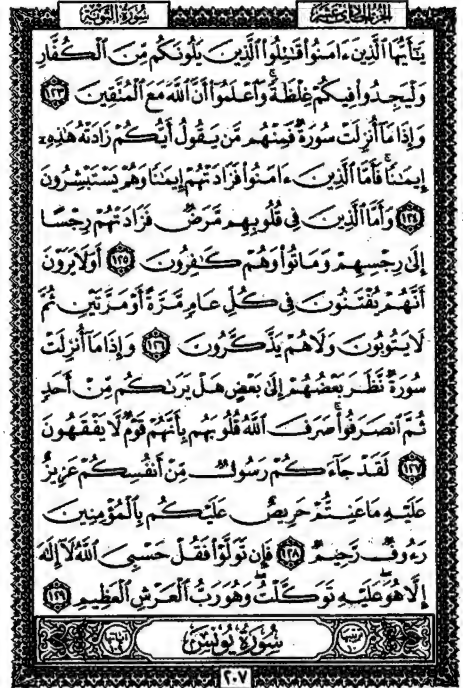 الجزء الحادي عشر سورة التوبة
يَـٰٓأَيُّهَا ٱلَّذِينَ ءَامَنُوا۟ قَـٰتِلُوا۟ ٱلَّذِينَ يَلُونَكُم مِّنَ ٱلْكُفَّارِ
وَلْيَجِدُوا۟ فِيكُمْ غِلْظَةً ۚ وَٱعْلَمُوٓا۟ أَنَّ ٱللَّهَ مَعَ ٱلْمُتَّقِينَ ١٢٣
وَإِذَا مَآ أُنزِلَتْ سُورَةٌ فَمِنْهُم مَّن يَقُولُ أَيُّكُمْ زَادَتْهُ هَـٰذِهِۦٓ
إِيمَـٰنًا ۚ فَأَمَّا ٱلَّذِينَ ءَامَنُوا۟ فَزَادَتْهُمْ إِيمَـٰنًا وَهُمْ يَسْتَبْشِرُونَ
١٢٤ وَأَمَّا ٱلَّذِينَ فِى قُلُوبِهِم مَّرَضٌ فَزَادَتْهُمْ رِجْسًا
إِلَىٰ رِجْسِهِمْ وَمَاتُوا۟ وَهُمْ كَـٰفِرُونَ ١٢٥ أَوَلَا يَرَوْنَ
أَنَّهُمْ يُفْتَنُونَ فِى كُلِّ عَامٍ مَّرَّةً أَوْ مَرَّتَيْنِ ثُمَّ
لَا يَتُوبُونَ وَلَا هُمْ يَذَّكَّرُونَ ١٢٦ وَإِذَا مَآ أُنزِلَتْ
سُورَةٌ نَّظَرَ بَعْضُهُمْ إِلَىٰ بَعْضٍ هَلْ يَرَىٰكُم مِّنْ أَحَدٍ
ثُمَّ ٱنصَرَفُوا۟ ۚ صَرَفَ ٱللَّهُ قُلُوبَهُم بِأَنَّهُمْ قَوْمٌ لَّا يَفْقَهُونَ
١٢٧ لَقَدْ جَآءَكُمْ رَسُولٌ مِّنْ أَنفُسِكُمْ عَزِيزٌ
عَلَيْهِ مَا عَنِتُّمْ حَرِيصٌ عَلَيْكُم بِٱلْمُؤْمِنِينَ
رَءُوفٌ رَّحِيمٌ ١٢٨ فَإِن تَوَلَّوْا۟ فَقُلْ حَسْبِىَ ٱللَّهُ لَآ إِلَـٰهَ
إِلَّا هُوَ ۖ عَلَيْهِ تَوَكَّلْتُ ۖ وَهُوَ رَبُّ ٱلْعَرْشِ ٱلْعَظِيمِ ١٢٩
ترتيبها ١٠ سُورَةُ يُونُسَ آياتها ١٠٩
٢٠٧